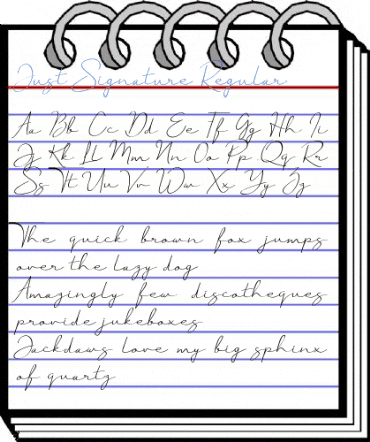 Just Signature Regular
Aa Bb Cc Dd Ee Ff Gg Hh Ii
Jj Kk Ll Mm Nn Oo Pp Qq Rr
Ss Tt Uu Vv Ww Xx Yy Zz
The quick brown fox jumps
over the lazy dog
Amazingly few discotheques
provide jukeboxes
Jackdaws love my big sphinx
of quartz